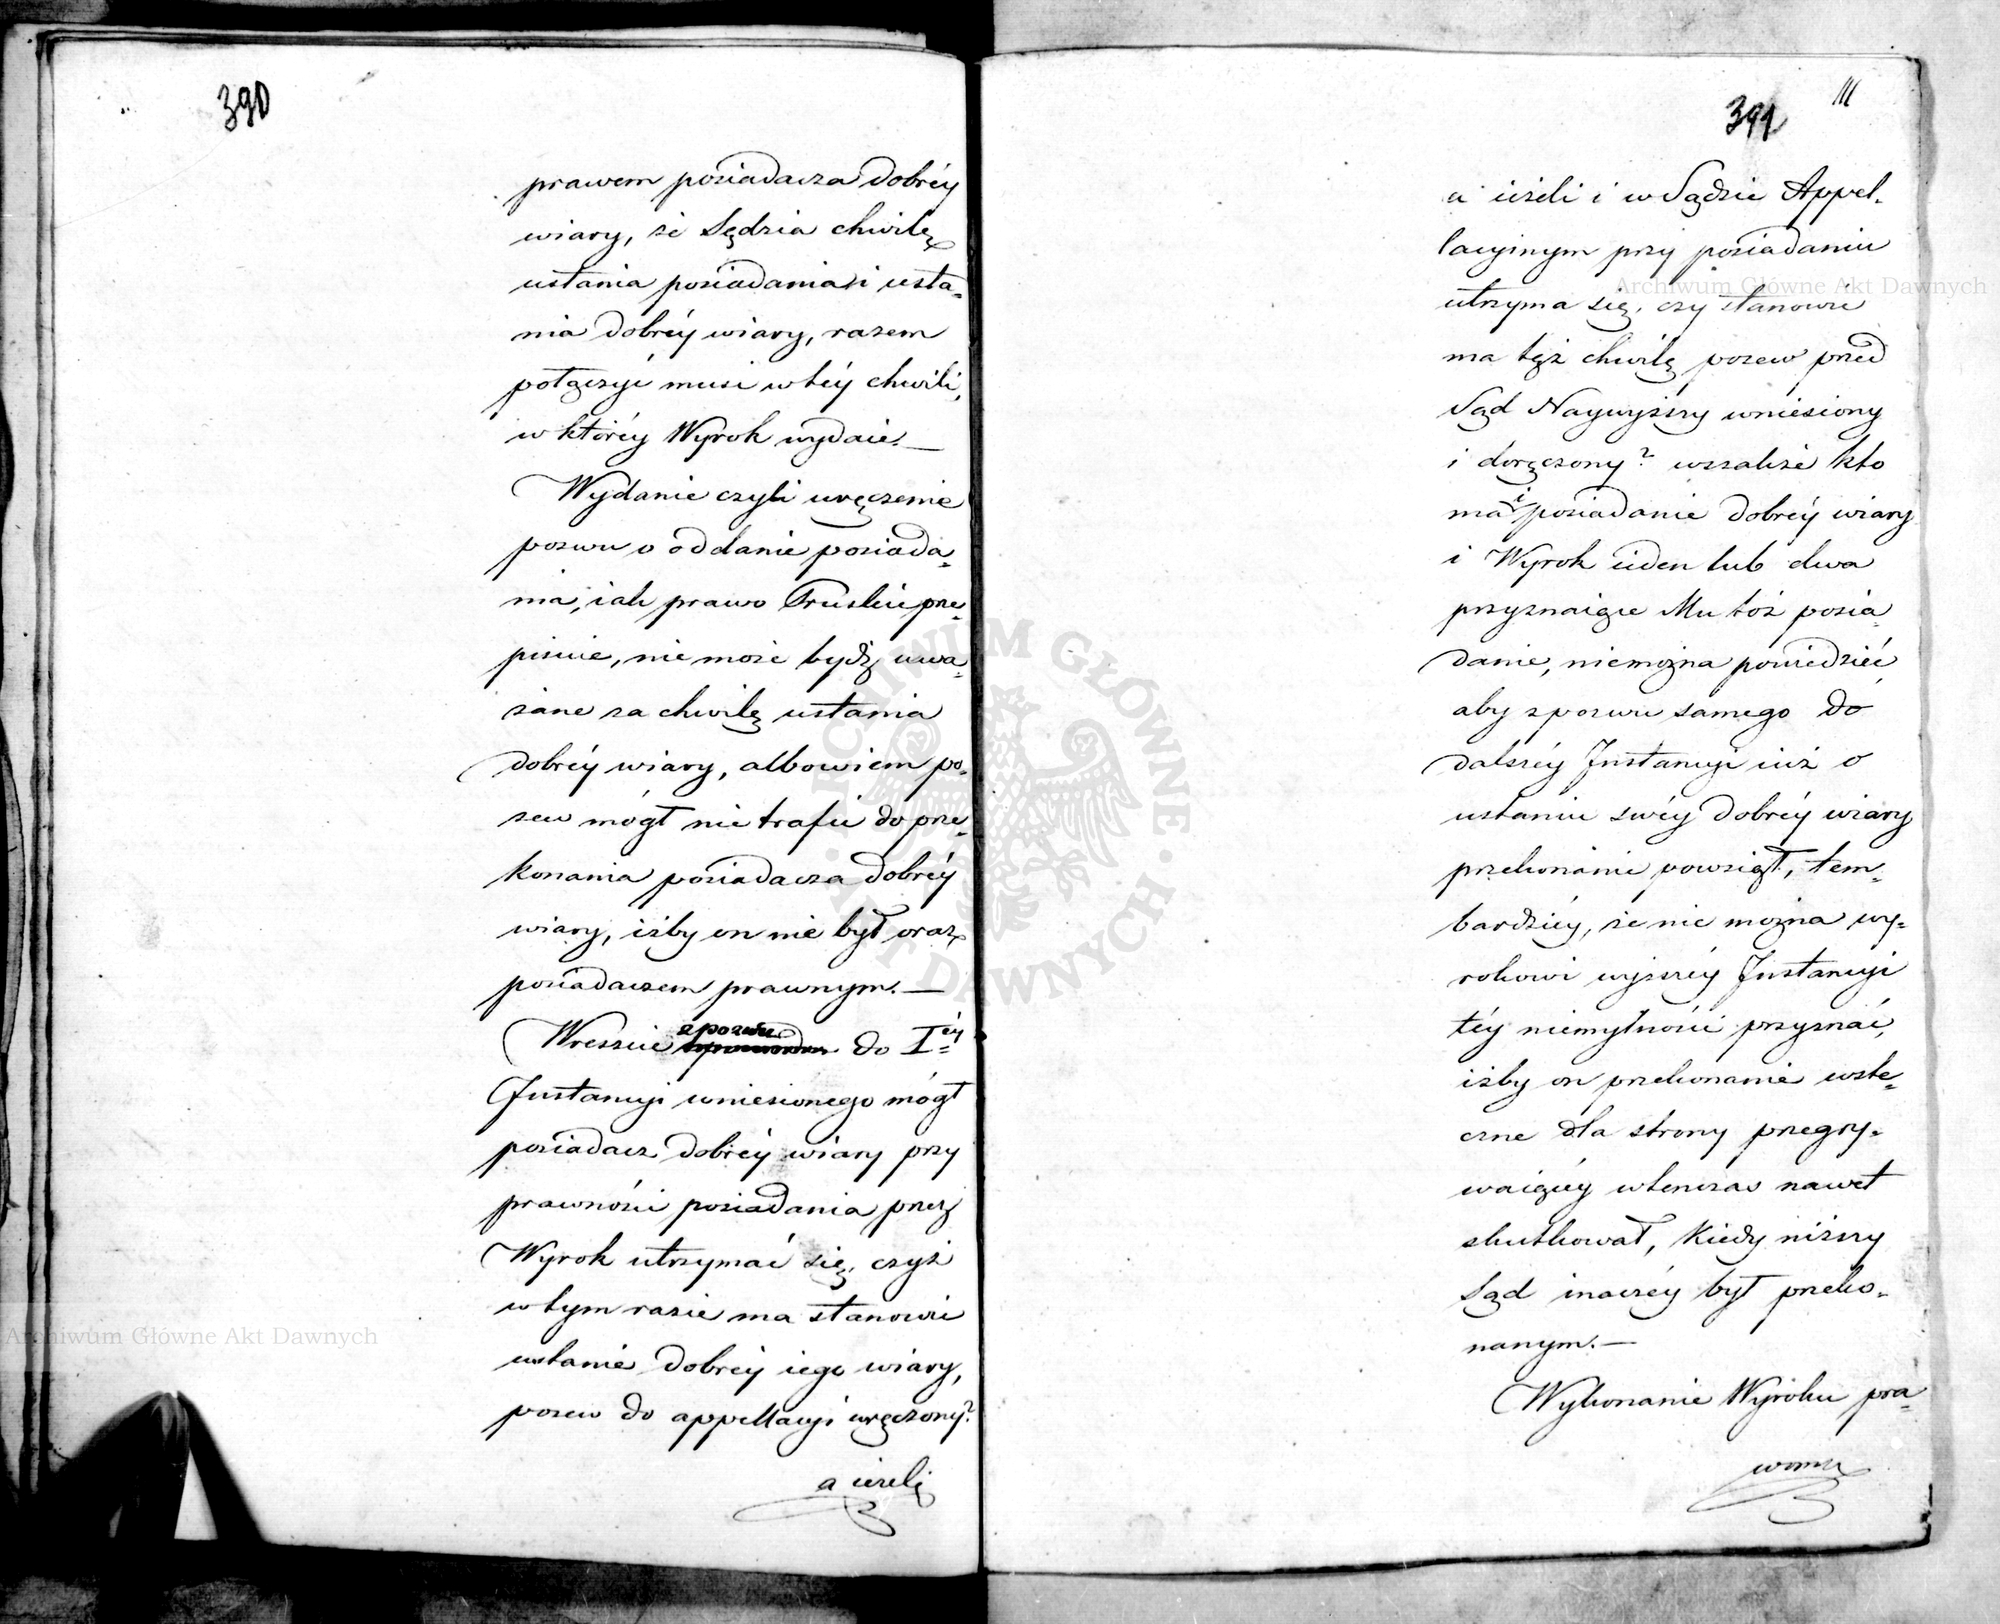 390
prawem posiadacza dobréy
wiary, że Sędzia chwilę
ustania posiadania i usta=
nia dobréy wiary, razem
połączyć musi w téy chwili,
w któréy Wyrok wydaie. —
Wydanie czyli wręczenie
pozwu o oddanie posiada=
nia, iak prawo Pruskie prze=
pisuie, nie może bydź uwa=
żane za chwilę ustania
dobréy wiary, albowiem po=
zew mógł nie trafić do prze=
konania posiadacza dobréy
wiary, iżby on nie był oraz
posiadaczem prawnym. —
Wreszcie z pozwu do I éy
Instancyi wniesionego mógł
posiadacz dobréy wiary przy
prawności posiadania przez
Wyrok utrzymać się, czyż
w tym razie ma stanowić
ustanie dobréy iego wiary,
pozew do appellacyi wręczony?
a ieżeli
111
391
a ieżeli i w Sądzie Appel=
lacyinym przy posiadaniu
utrzyma się, czy stanowić
ma tęż chwilę pozew przed
Sąd Naywyższy wniesiony
i doręczony? wszakże kto
ma i posiadanie dobréy wiary
i Wyrok ieden lub dwa
przyznaiące Mu toż posia=
danie, niemożna powiedzieć,
aby z pozwu samego do
dalszéy Instancyi iuż o
ustaniu swéy dobréy wiary
przekonanie powziął, tem=
bardziéy, że nie można wy=
rokowi wyższéy Instancyi
téy niemylności przyznać,
iżby on przekonanie wste=
czne dla strony przegry=
waiącéy wtenczas nawet
skutkował, kiedy niższy
Sąd inaczéy był przeko=
nanym. —
Wykonanie Wyroku pra=
womo
Archiwum Główne Akt Dawnych
Archiwum Główne Akt Dawnych
ARCHIWUM GŁÓWNE · AKT DAWNYCH ·